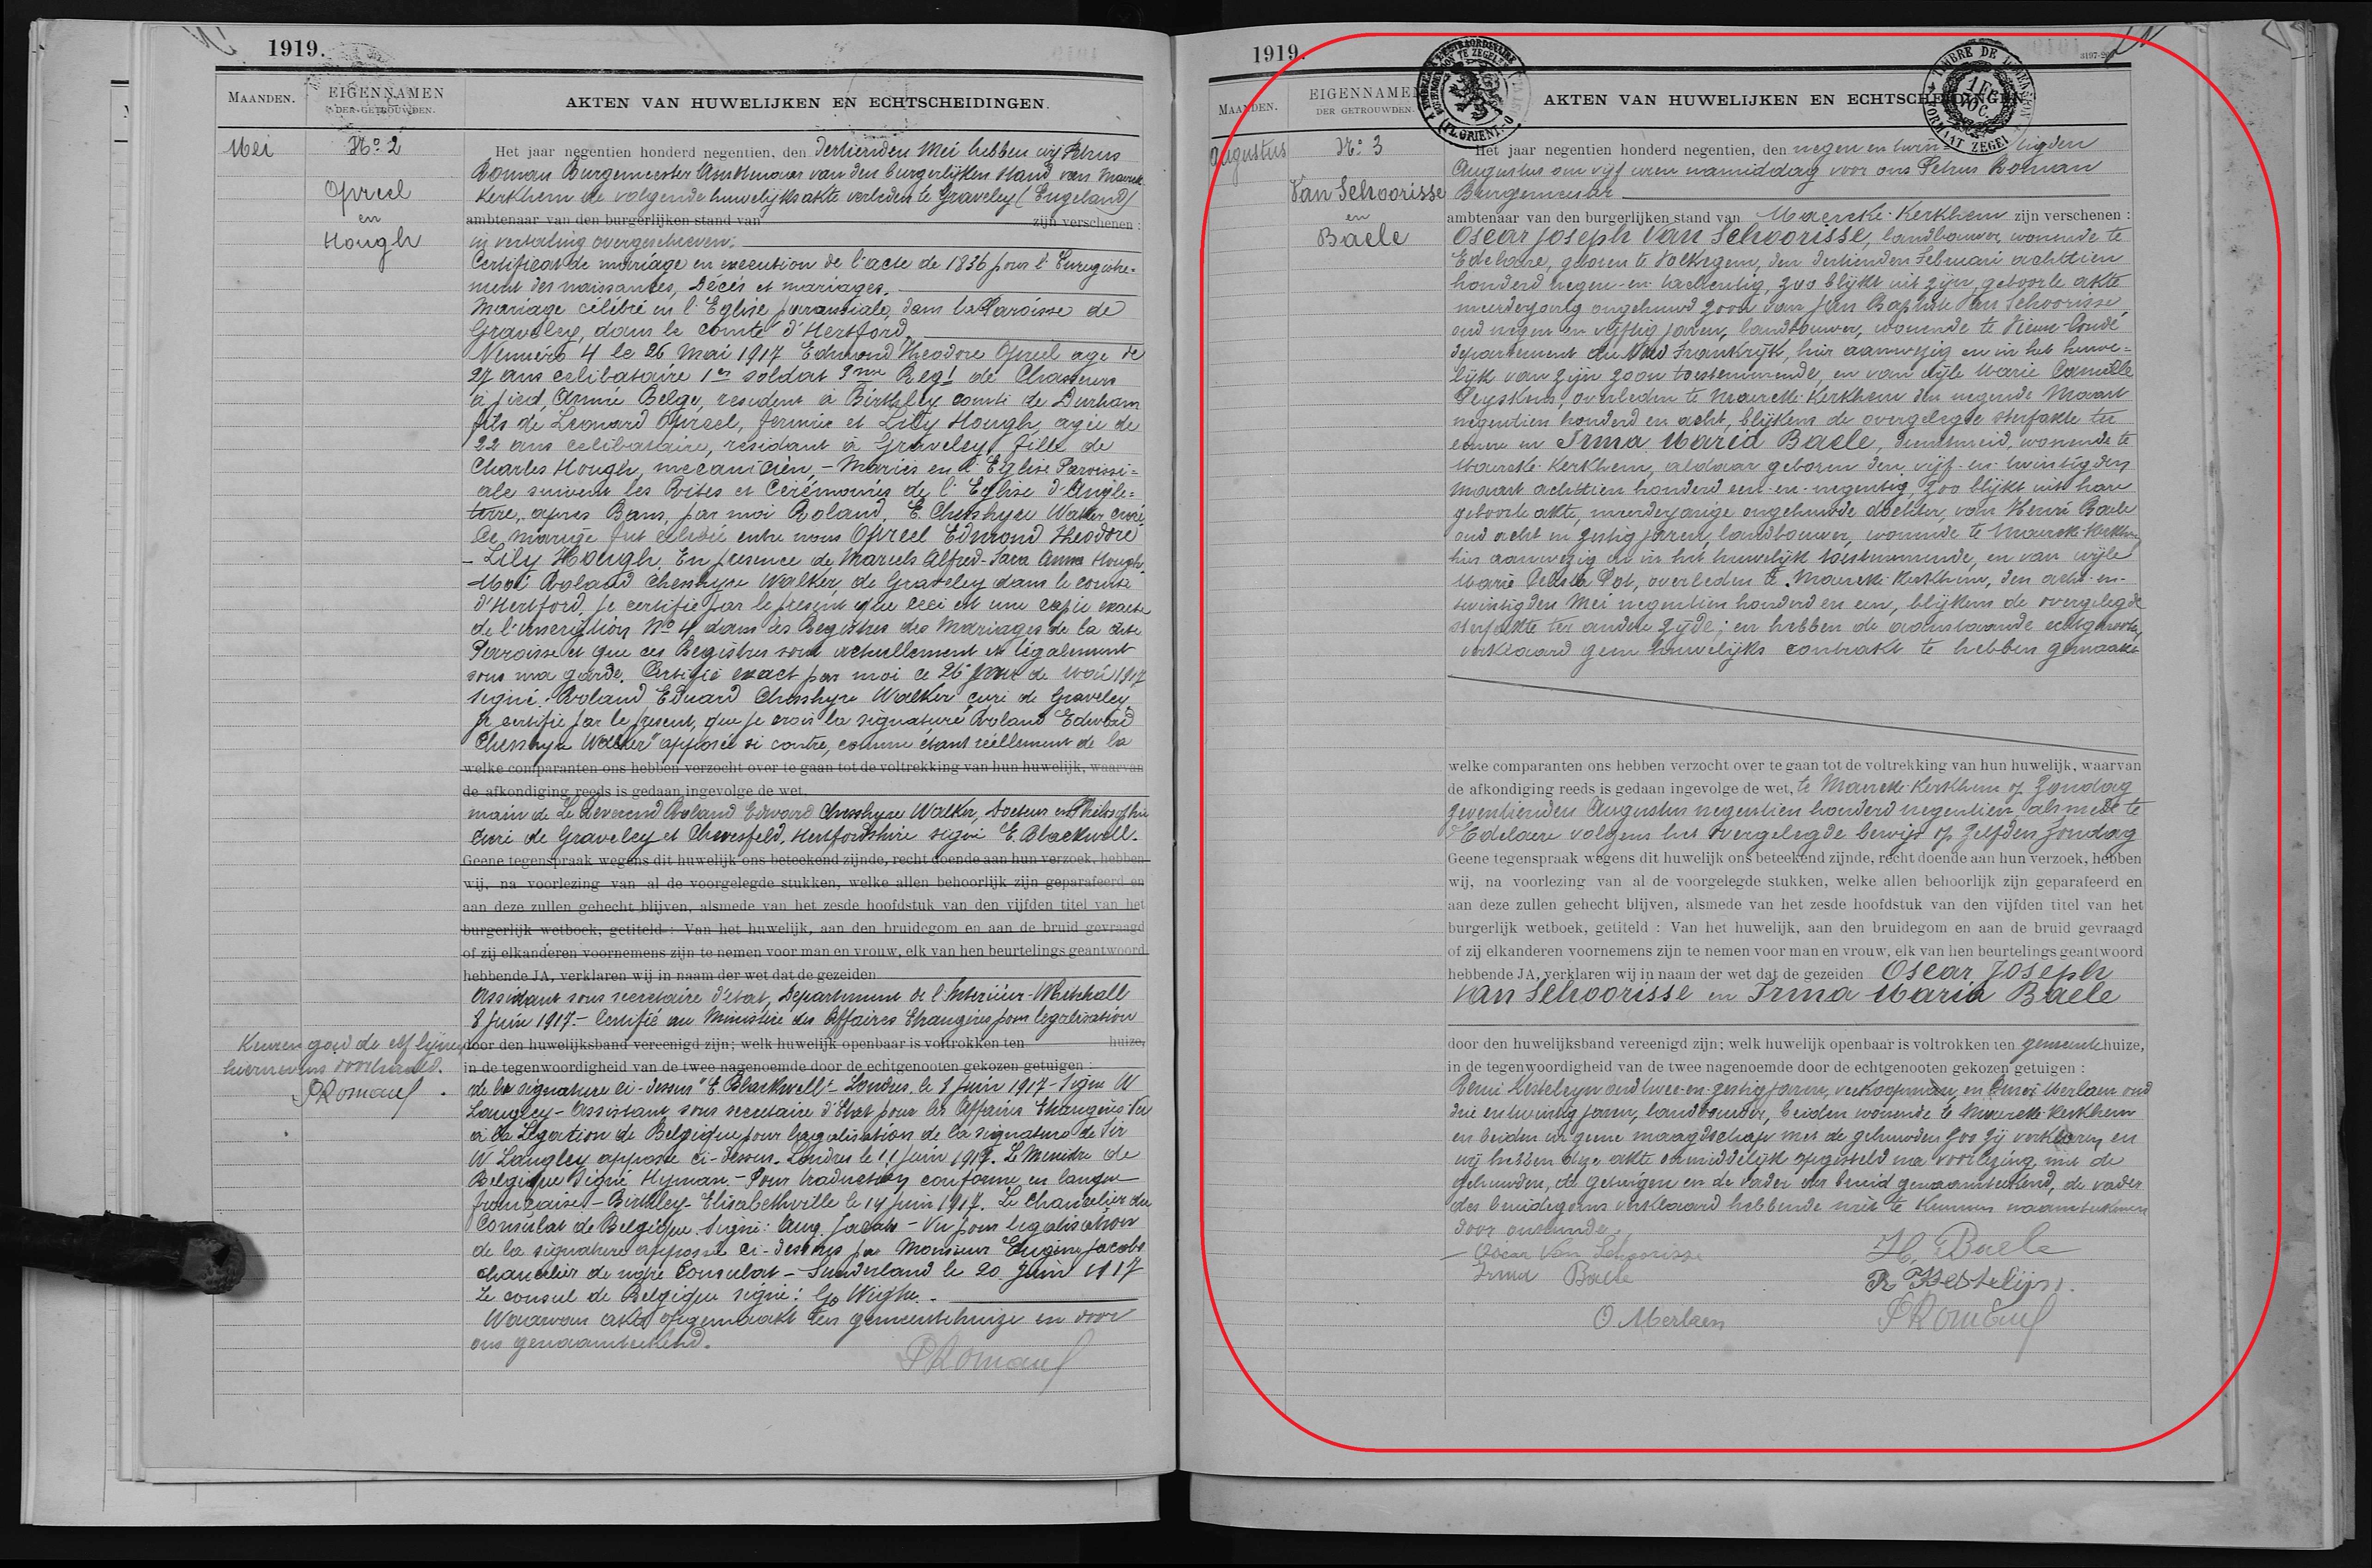 1919.
MAANDEN.
EIGENNAMEN
DER GETROUWDEN.
AKTEN VAN HUWELIJKEN EN ECHTSCHEIDINGEN.
Mei
No 2
Opreel
en
Hough
Het jaar negentien honderd negentien, den dertienden Mei hebben wij Petrus
Roman Burgemeester Ambtenaar van den burgerlijken stand van Maercke
Kerkhem de volgende huwelijksakte verleden te Graveley (Engeland)
ambtenaar van den burgerlijken stand van zijn verschenen :
in vertaling overgeschreven:
Certificat de mariage en execution de l'acte de 1836 pour l'Enregistre-
ment des naissances, Décès et mariages.
Mariage célébré en l'Eglise paroissiale, dans la Paroisse de
Graveley, dans le comté d'Hertford.
Numéro 4 le 26 Mai 1917 Edmond Theodore Opreel age de
27 ans celibataire 1er soldat 3me Regt de Chasseurs
à pied, Armée Belge, resident à Birtley comté de Durham
fils de Leonard Opreel, fermier et Lily Hough, agée de
22 ans celibataire, residant à Graveley, fille de
Charles Hough, mecanicien, - Mariés en l'Eglise Paroissi=
ale suivant les Rites et Cérémonies de l'Eglise d'Angle=
terre, apres Bans, par moi Roland E. Chesshyre Walker curé
Ce mariage fut célébré entre nous Opreel Edmond Theodore
- Lily Hough. En presence de Marcels Alfred-Sara Anna Hough.
Moi Roland Chesshyre Walker, de Graveley dans le comté
d'Hertford, je certifie par le present que ceci est une copie exacte
de l'inscription No 4 dans les Registres des Mariages de la dite
Paroisse et que ces Registres sont actuellement et légalement
sous ma garde. Certifié exact par moi ce 26 jour de Mai 1917
signé: Roland Eduard Chesshyre Walker curé de Graveley.
Je certifie par le present, que je crois la signature "Roland Edward
Chesshyre Walker" apposée ci contre, comme étant réellement de la
welke comparanten ons hebben verzocht over te gaan tot de voltrekking van hun huwelijk, waarvan
de afkondiging reeds is gedaan ingevolge de wet,
main de Le Reverend Roland Edward Chesshyre Walker, Docteur en Philosophie
Curé de Graveley et Chivesfeld, Hertfordshire signé E. Blackwell.
Geene tegenspraak wegens dit huwelijk ons beteekend zijnde, recht doende aan hun verzoek, hebben
wij, na voorlezing van al de voorgelegde stukken, welke allen behoorlijk zijn geparafeerd en
aan deze zullen gehecht blijven, alsmede van het zesde hoofdstuk van den vijfden titel van het
burgerlijk wetboek, getiteld : Van het huwelijk, aan den bruidegom en aan de bruid gevraagd
of zij elkanderen voornemens zijn te nemen voor man en vrouw, elk van hen beurtelings geantwoord
hebbende JA, verklaren wij in naam der wet dat de gezeiden
Assistant sous secretaire d'état, Departement de l'Interieur-Whitehall
8 Juin 1917.- Certifié au Ministère des Affaires Etrangères pour legalisation
door den huwelijksband vereenigd zijn; welk huwelijk openbaar is voltrokken ten huize,
in de tegenwoordigheid van de twee nagenoemde door de echtgenooten gekozen getuigen :
Keuren goed de elf lijnen
hiernevens doorhaald.
PRoman
de la signature ci-dessus "E Blackwell" - Londres, le 8 Juin 1917 - Signé W
Langley - Assistant sous secretaire d'Etat pour les Affaires Etrangères Vu
à la Legation de Belgique pour legalisation de la signature de Sir
W Langley apposée ci-dessus. Londres le 11 Juin 1917. Le Ministre de
Belgique Signé Hyman - Pour traduction conforme en langue
française - Birtley-Elisabethville le 14 Juin 1917. Le Chancelier du
Consulat de Belgique. Signé: Aug. Jacobs - Vu pour legalisation
de la signature apposée ci-dessus par Monsieur Eugène Jacobs
chancelier de notre Consulat - Sunderland le 20 Juin 1917
Le consul de Belgique signé:
Waarvan akte opgemaakt ten gemeentehuize en door
ons genaamteekend.
PRoman
1919.
3197-20
MAANDEN.
EIGENNAMEN
DER GETROUWDEN.
AKTEN VAN HUWELIJKEN EN ECHTSCHEIDINGEN
Augustus
No 3
Van Schoorisse
en
Baele
Het jaar negentien honderd negentien, den negen en twintigsten
Augustus om vijf uren namiddag voor ons Petrus Roman
Burgemeester
ambtenaar van den burgerlijken stand van Maercke-Kerkhem zijn verschenen :
Oscar Joseph Van Schoorisse, landbouwer, wonende te
Edelaere, geboren te Volkegem, den dertienden Februari achttien
honderd negen-en-tachtentig, zoo blijkt uit zijn geboorte akte
meerderjarig ongehuwd zoon van Jan Baptiste Van Schoorisse
oud negen en vijftig jaren, landbouwer, wonende te Vieux-Condé
departement du Nord Frankrijk, hier aanwezig en in het huwe=
lijk van zijn zoon toestemmende, en van wijle Marie Camille
overleden te Maercke-Kerkhem den negende Maart
negentien honderd en acht, blijkens de overgelegde sterfakte ter
eenre en Irma Maria Baele, dienstmeid, wonende te
Maercke-Kerkhem, aldaar geboren den vijf-en-twintigsten
Maart achttien honderd een-en-negentig, zoo blijkt uit hare
geboorte akte, meerderjarige ongehuwde dochter, van Henri Baele
oud acht en zestig jaren, landbouwer, wonende te Maercke-Kerkhem
hier aanwezig en in het huwelijk toestemmende, en van wijle
Marie Pot, overleden te Maercke-Kerkhem, den acht-en-
twintigsten Mei negentien honderd en een, blijkens de overgelegde
sterfakte ter andere zijde; en hebben de aanstaande echtgenooten
verklaard geen huwelijks contrakt te hebben gemaakt
welke comparanten ons hebben verzocht over te gaan tot de voltrekking van hun huwelijk, waarvan
de afkondiging reeds is gedaan ingevolge de wet, te Maercke-Kerkhem op Zondag
zeventienden Augustus negentien honderd negentien, alsmede te
Edelaere volgens het overgelegde bewijs op zelfden zondag
Geene tegenspraak wegens dit huwelijk ons beteekend zijnde, recht doende aan hun verzoek, hebben
wij, na voorlezing van al de voorgelegde stukken, welke allen behoorlijk zijn geparafeerd en
aan deze zullen gehecht blijven, alsmede van het zesde hoofdstuk van den vijfden titel van het
burgerlijk wetboek, getiteld : Van het huwelijk, aan den bruidegom en aan de bruid gevraagd
of zij elkanderen voornemens zijn te nemen voor man en vrouw, elk van hen beurtelings geantwoord
hebbende JA, verklaren wij in naam der wet dat de gezeiden Oscar Joseph
Van Schoorisse en Irma Maria Baele
door den huwelijksband vereenigd zijn; welk huwelijk openbaar is voltrokken ten gemeentehuize,
in de tegenwoordigheid van de twee nagenoemde door de echtgenooten gekozen getuigen :
Remi Kestelyn oud twee-en-zestig jaren, verkoopman, en Omer Merlaen oud
drie en twintig jaren, landbouwer, beiden wonende te Maercke-Kerkhem
en beiden in geene maagdschap met de gehuwden zoo zij verklaren en
wij hebben deze akte onmiddelijk opgesteld na voorlezing met de
gehuwden, de getuigen en de vader der bruid genaamteekend, de vader
des bruidegoms verklaard hebbende niet te kunnen naamteekenen
door onkunde.
Oscar Van Schoorisse
H. Baele
Irma Baele
R Kestelijn
O. Merlaen
PRoman